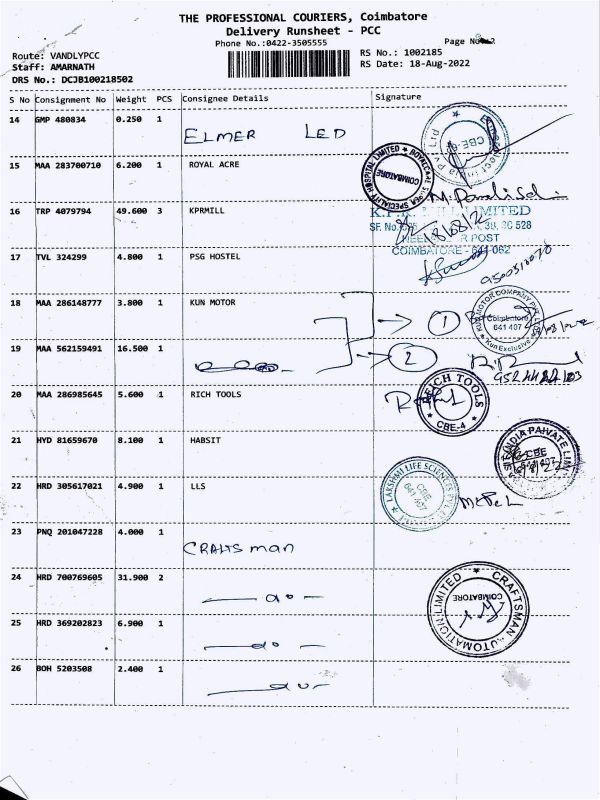 THE PROFESSIONAL COURIERS, Coimbatore
Delivery Runsheet - PCC
Phone No.:0422-3505555
Route: VANDLYPCC
Staff: AMARNATH
DRS No.: DCJB100218502
Page No 2
RS No.: 1002185
RS Date: 18-Aug-2022
S No Consignment No Weight PCS Consignee Details Signature
14 GMP 480834 0.250 1 ELMER LED
CBE-6
15 MAA 283700710 6.200 1 ROYAL ACRE
COIMBATORE
16 TRP 4079794 49.600 3 KPRMILL
18/08/2
17 TVL 324299 4.800 1 PSG HOSTEL
COIMBATORE - 641 062
18 MAA 286148777 3.800 1 KUN MOTOR
1
KUN MOTOR COMPANY PVT. LTD.
Coimbatore
641 407
Kun Exclusive
19 MAA 562159491 16.500 1
2
20 MAA 286985645 5.600 1 RICH TOOLS
REICH TOOLS
CBE-4
21 HYD 81659670 8.100 1 HABSIT
INDIA PRIVATE LIM
CBE
22 HRD 305617021 4.900 1 LLS
LAKSHMI LIFE SCIENCES
CBE
641 407
23 PNQ 201047228 4.000 1 CRAFTSman
24 HRD 700769605 31.900 2 — do —
CRAFTSMAN AUTOMATION LIMITED
COIMBATORE
25 HRD 369202823 6.900 1 — do —
26 BOH 5203508 2.400 1 — do —